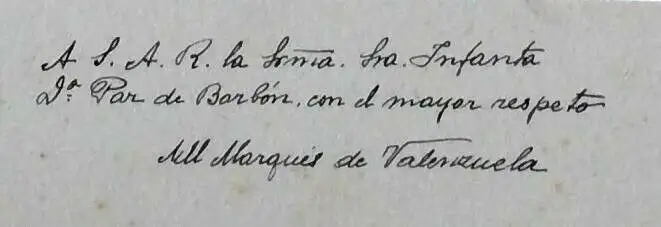 A S. A. R. la Srma. Sra. Infanta
Dª Paz de Borbón, con el mayor respeto
El Marqués de Valenzuela